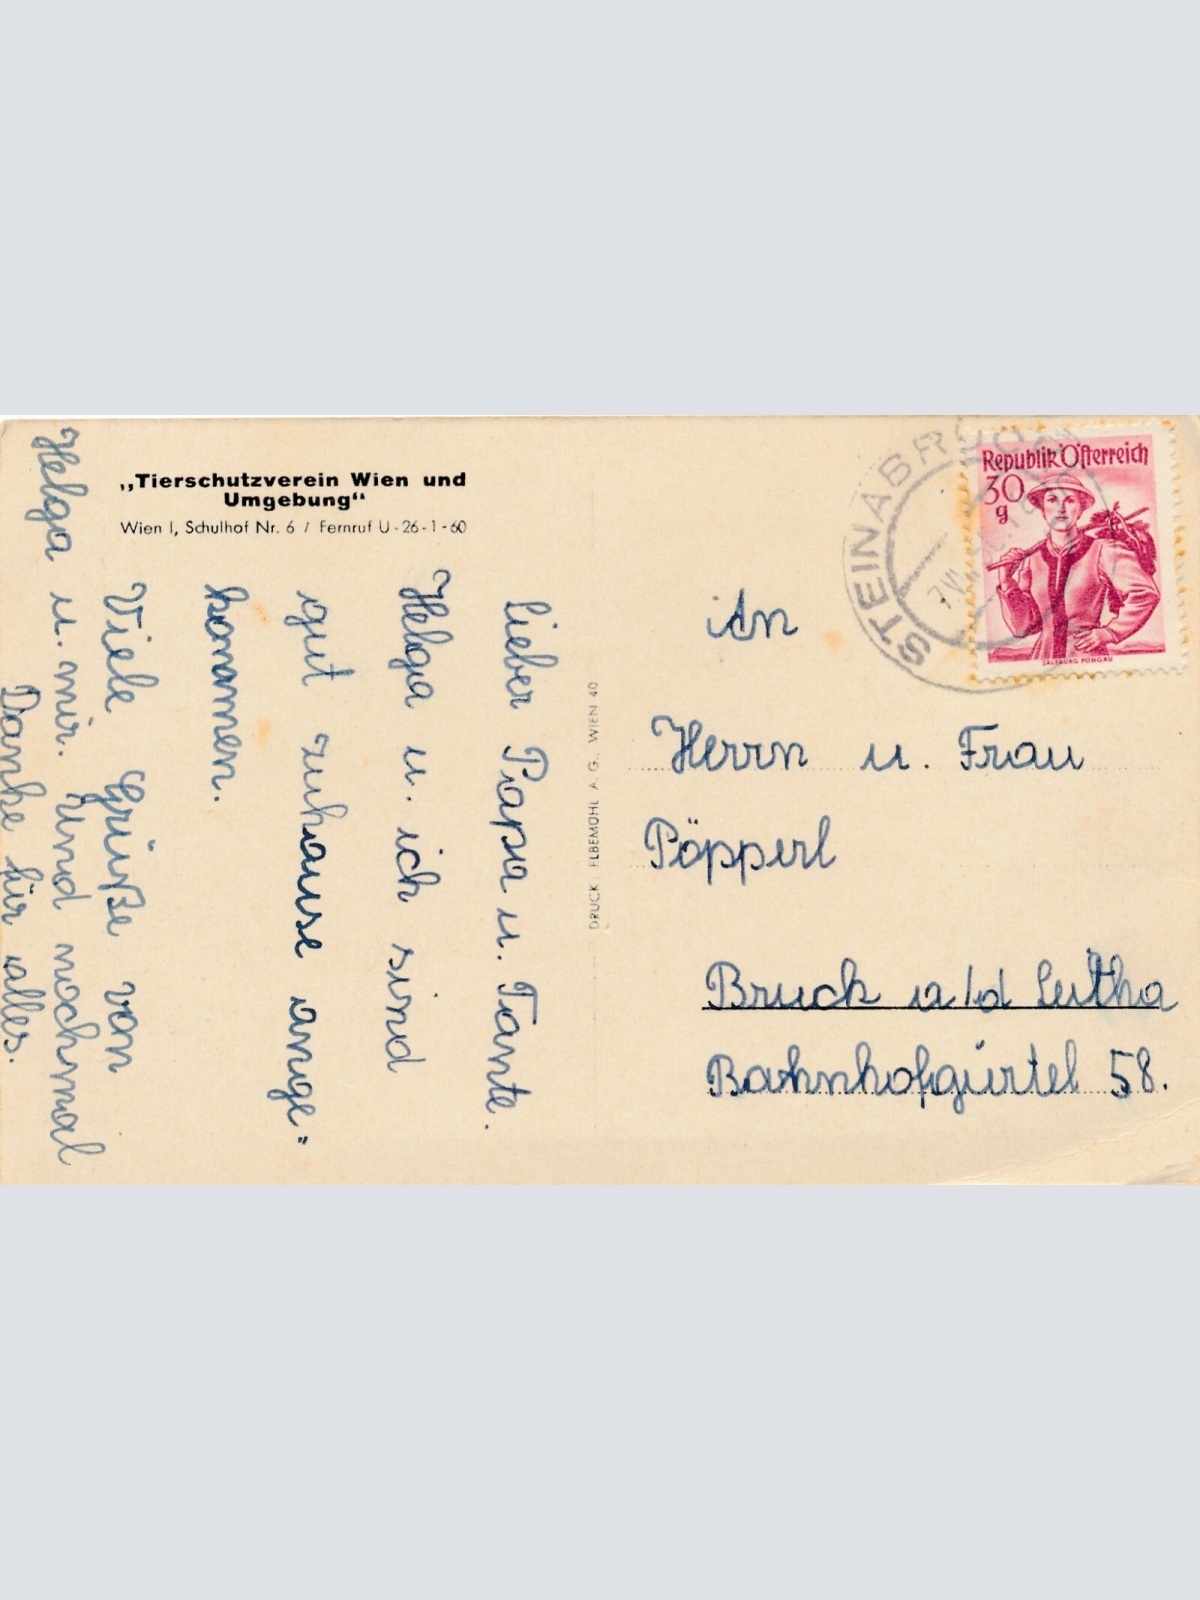 „Tierschutzverein Wien und
Umgebung“
Wien I, Schulhof Nr. 6 / Fernruf U-26-1-60
Lieber Papa u. Tante.
Helga u. ich sind
gut zuhause ange=
kommen.
Viele Grüße von
Helga u. mir. Und nochmal
Danke für alles.
DRUCK ELBEMÜHL A. G., WIEN 40
STEINABRÜCKL
Republik Österreich
30
g
SALZBURG PONGAU
An
Herrn u. Frau
Pöpperl
Bruck a/d Leitha
Bahnhofgürtel 58.